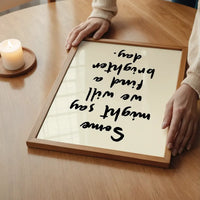 Some
might say
we will
find a
brighter
day.